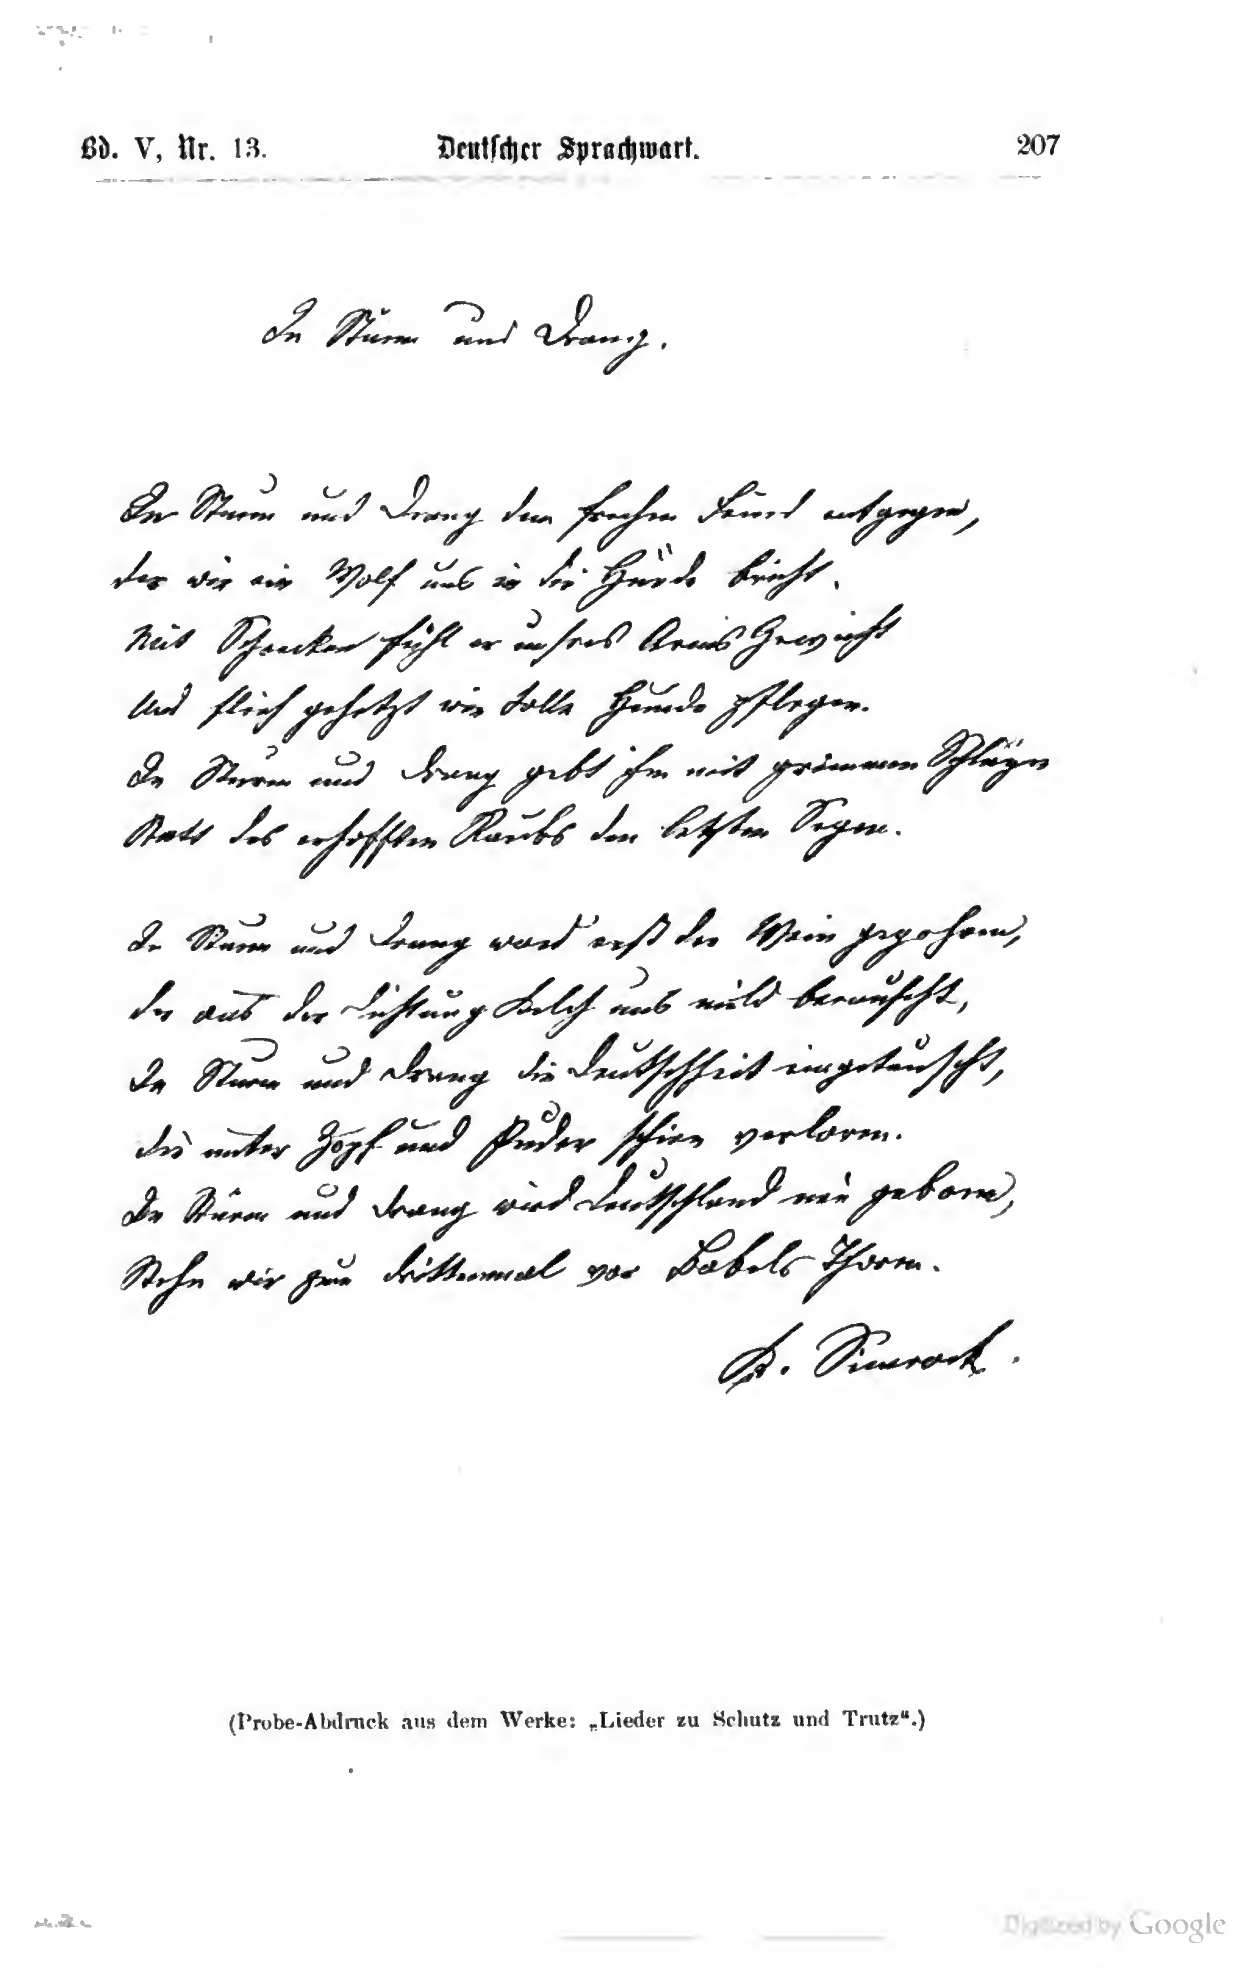 Bd. V, Nr. 13. Deutscher Sprachwart. 207
In Sturm und Drang.
In Sturm und Drang dem frechen Feind entgegen,
der wie ein Wolf uns in die Hürde bricht.
Mit Schrecken fühl er unsres Arms Gewicht
Und flieh gehetzt wie tolle Hunde pflegen.
In Sturm und Drang gebt ihm mit grimmen Schlägen
Statt des erhofften Raubs den letzten Segen.
In Sturm und Drang ward erst der Wein gegohren,
der aus der Dichtung Kelch uns mild berauscht,
In Sturm und Drang die Deutschheit eingetauscht,
die unter Zopf und Puder schien verloren.
In Sturm und Drang wird Deutschland neu geboren,
Stehn wir zum drittenmal vor Babels Thoren.
K. Simrock.
(Probe-Abdruck aus dem Werke: „Lieder zu Schutz und Trutz“.)
Digitized by Google